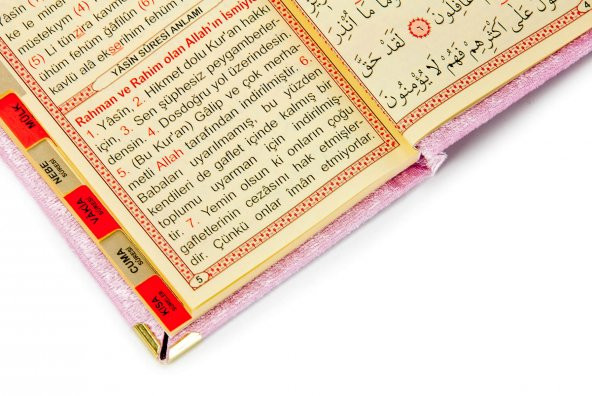 ke le minel
müstekıym (4)
(5) Li tünzira kavme
ühüm fehüm ğâfilûn (6)
kavlü alâ ekserihim fehüm
YÂSİN SÛRESİ ANLAMI
Rahman ve Rahim olan Allah'ın İsmiyle
1. Yâsîn, 2. Hikmet dolu Kur'an hakkı
için, 3. Sen şüphesiz peygamberler-
densin. 4. Dosdoğru yol üzerindesin.
5. (Bu Kur'an) Gâlip ve çok merha-
metli Allah tarafından indirilmiştir. 6.
Babaları uyarılmamış, bu yüzden
kendileri de gaflet içinde kalmış bir
toplumu uyarman için indirilmiş-
tir. 7. Yemin olsun ki onların çoğu
gafletlerinin cezâsını hak etmişler-
dir. Çünkü onlar îmân etmiyorlar.
5
MÜLK
NEBE
SÛRESİ
VAKIA
CUMA
SÛRESİ
KISA
SÛRELER
4
غَافِلُونَ ﴿٦﴾ لَقَدْ حَقَّ
عَلَى أَكْثَرِهِمْ فَهُمْ لَا يُؤْمِنُونَ